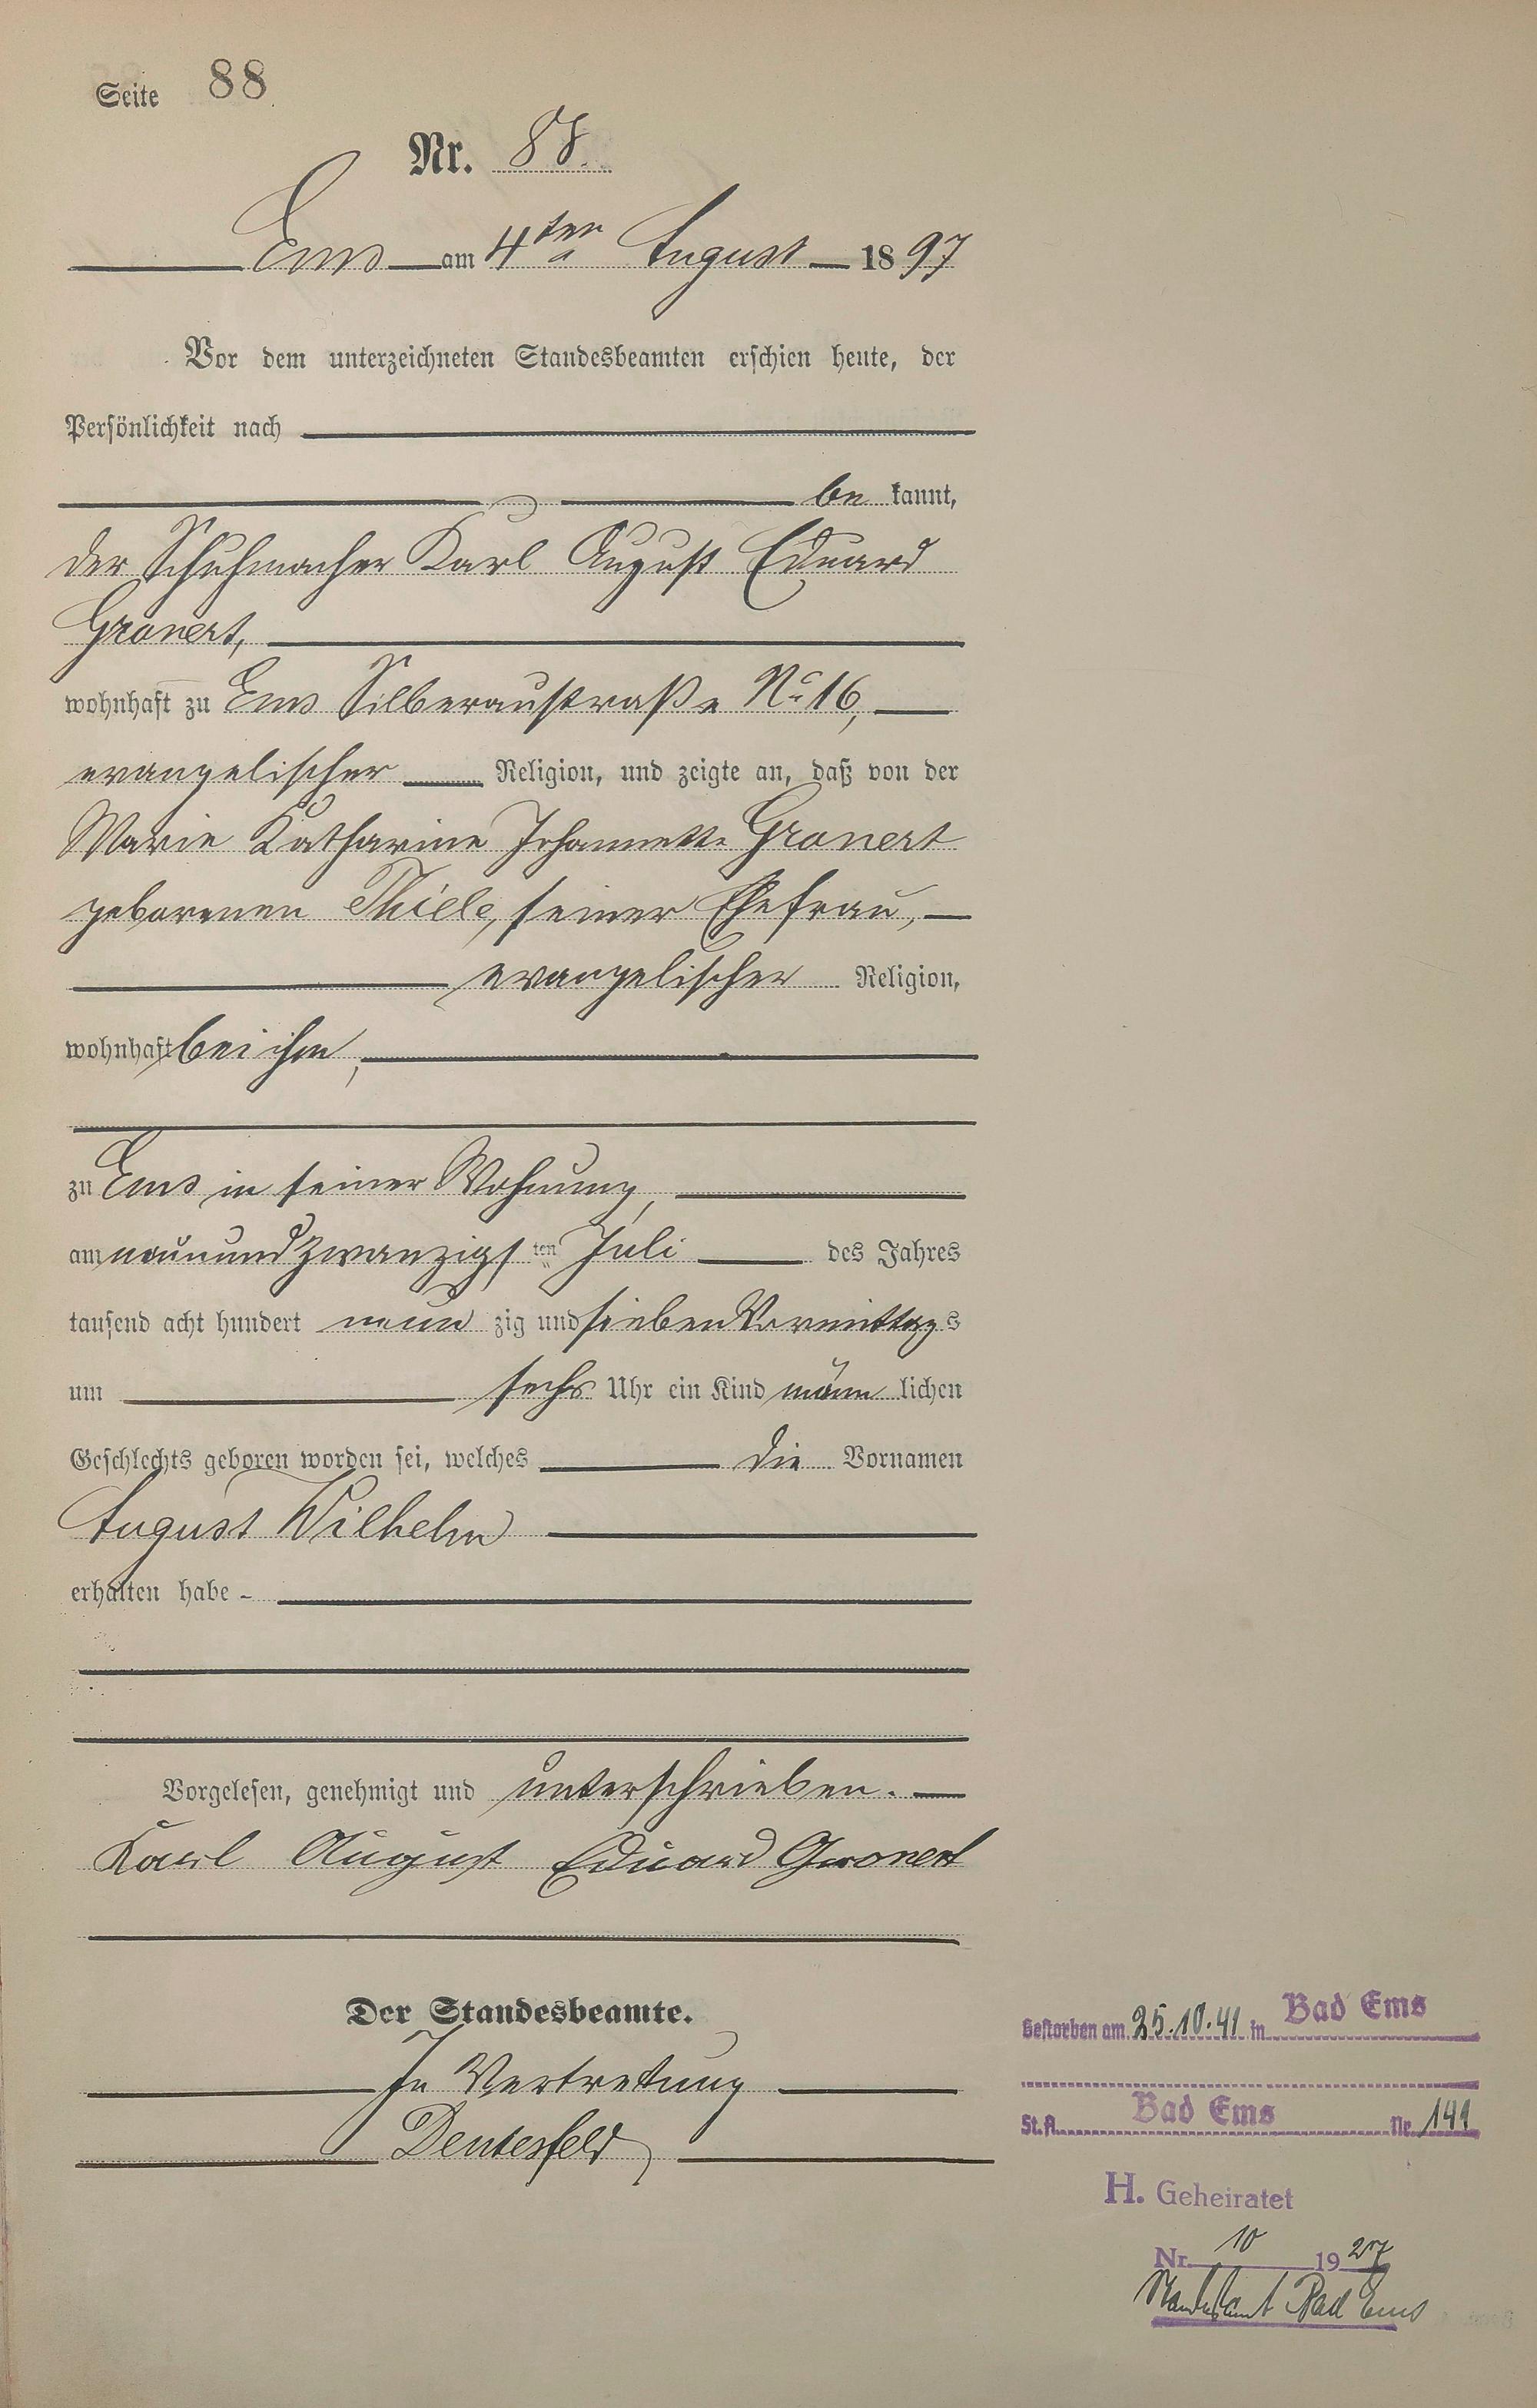 Seite 88
Nr. 88.
Ems am 4ten August 1897
Vor dem unterzeichneten Standesbeamten erschien heute, der
Persönlichkeit nach
be kannt,
der Schuhmacher Karl August Eduard
Gronert,
wohnhaft zu Ems Silberaustraße No 16,
evangelischer Religion, und zeigte an, daß von der
Marie Katharine Johannette Gronert
geborenen Thiele, seiner Ehefrau,
evangelischer Religion,
wohnhaft bei ihm,
zu Ems in seiner Wohnung,
am neunundzwanzigsten Juli des Jahres
tausend acht hundert neun zig und sieben Vormittags
um sechs Uhr ein Kind männ lichen
Geschlechts geboren worden sei, welches die Vornamen
August Wilhelm
erhalten habe
Vorgelesen, genehmigt und unterschrieben.
Karl August Eduard Gronert
Der Standesbeamte.
In Vertretung
Gestorben am 25.10.41 in Bad Ems
St.A. Bad Ems Nr. 141
H. Geheiratet
Nr. 10 1927
Standesamt Bad Ems